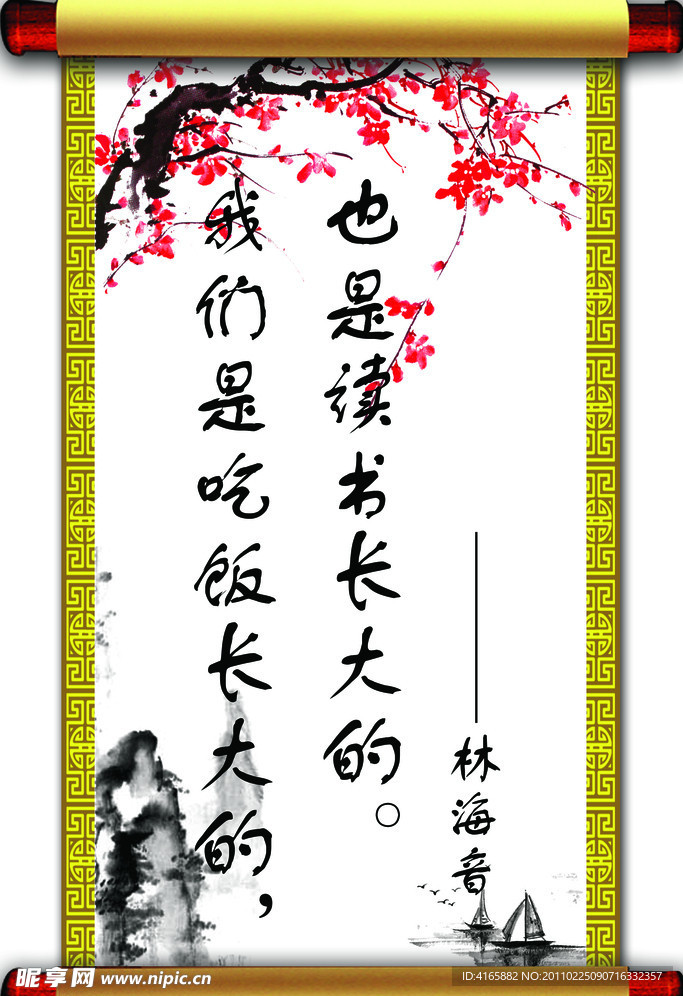 我们是吃饭长大的，
也是读书长大的。
——林海音
昵享网 www.nipic.cn
ID:4165882 NO:20110225090716332357